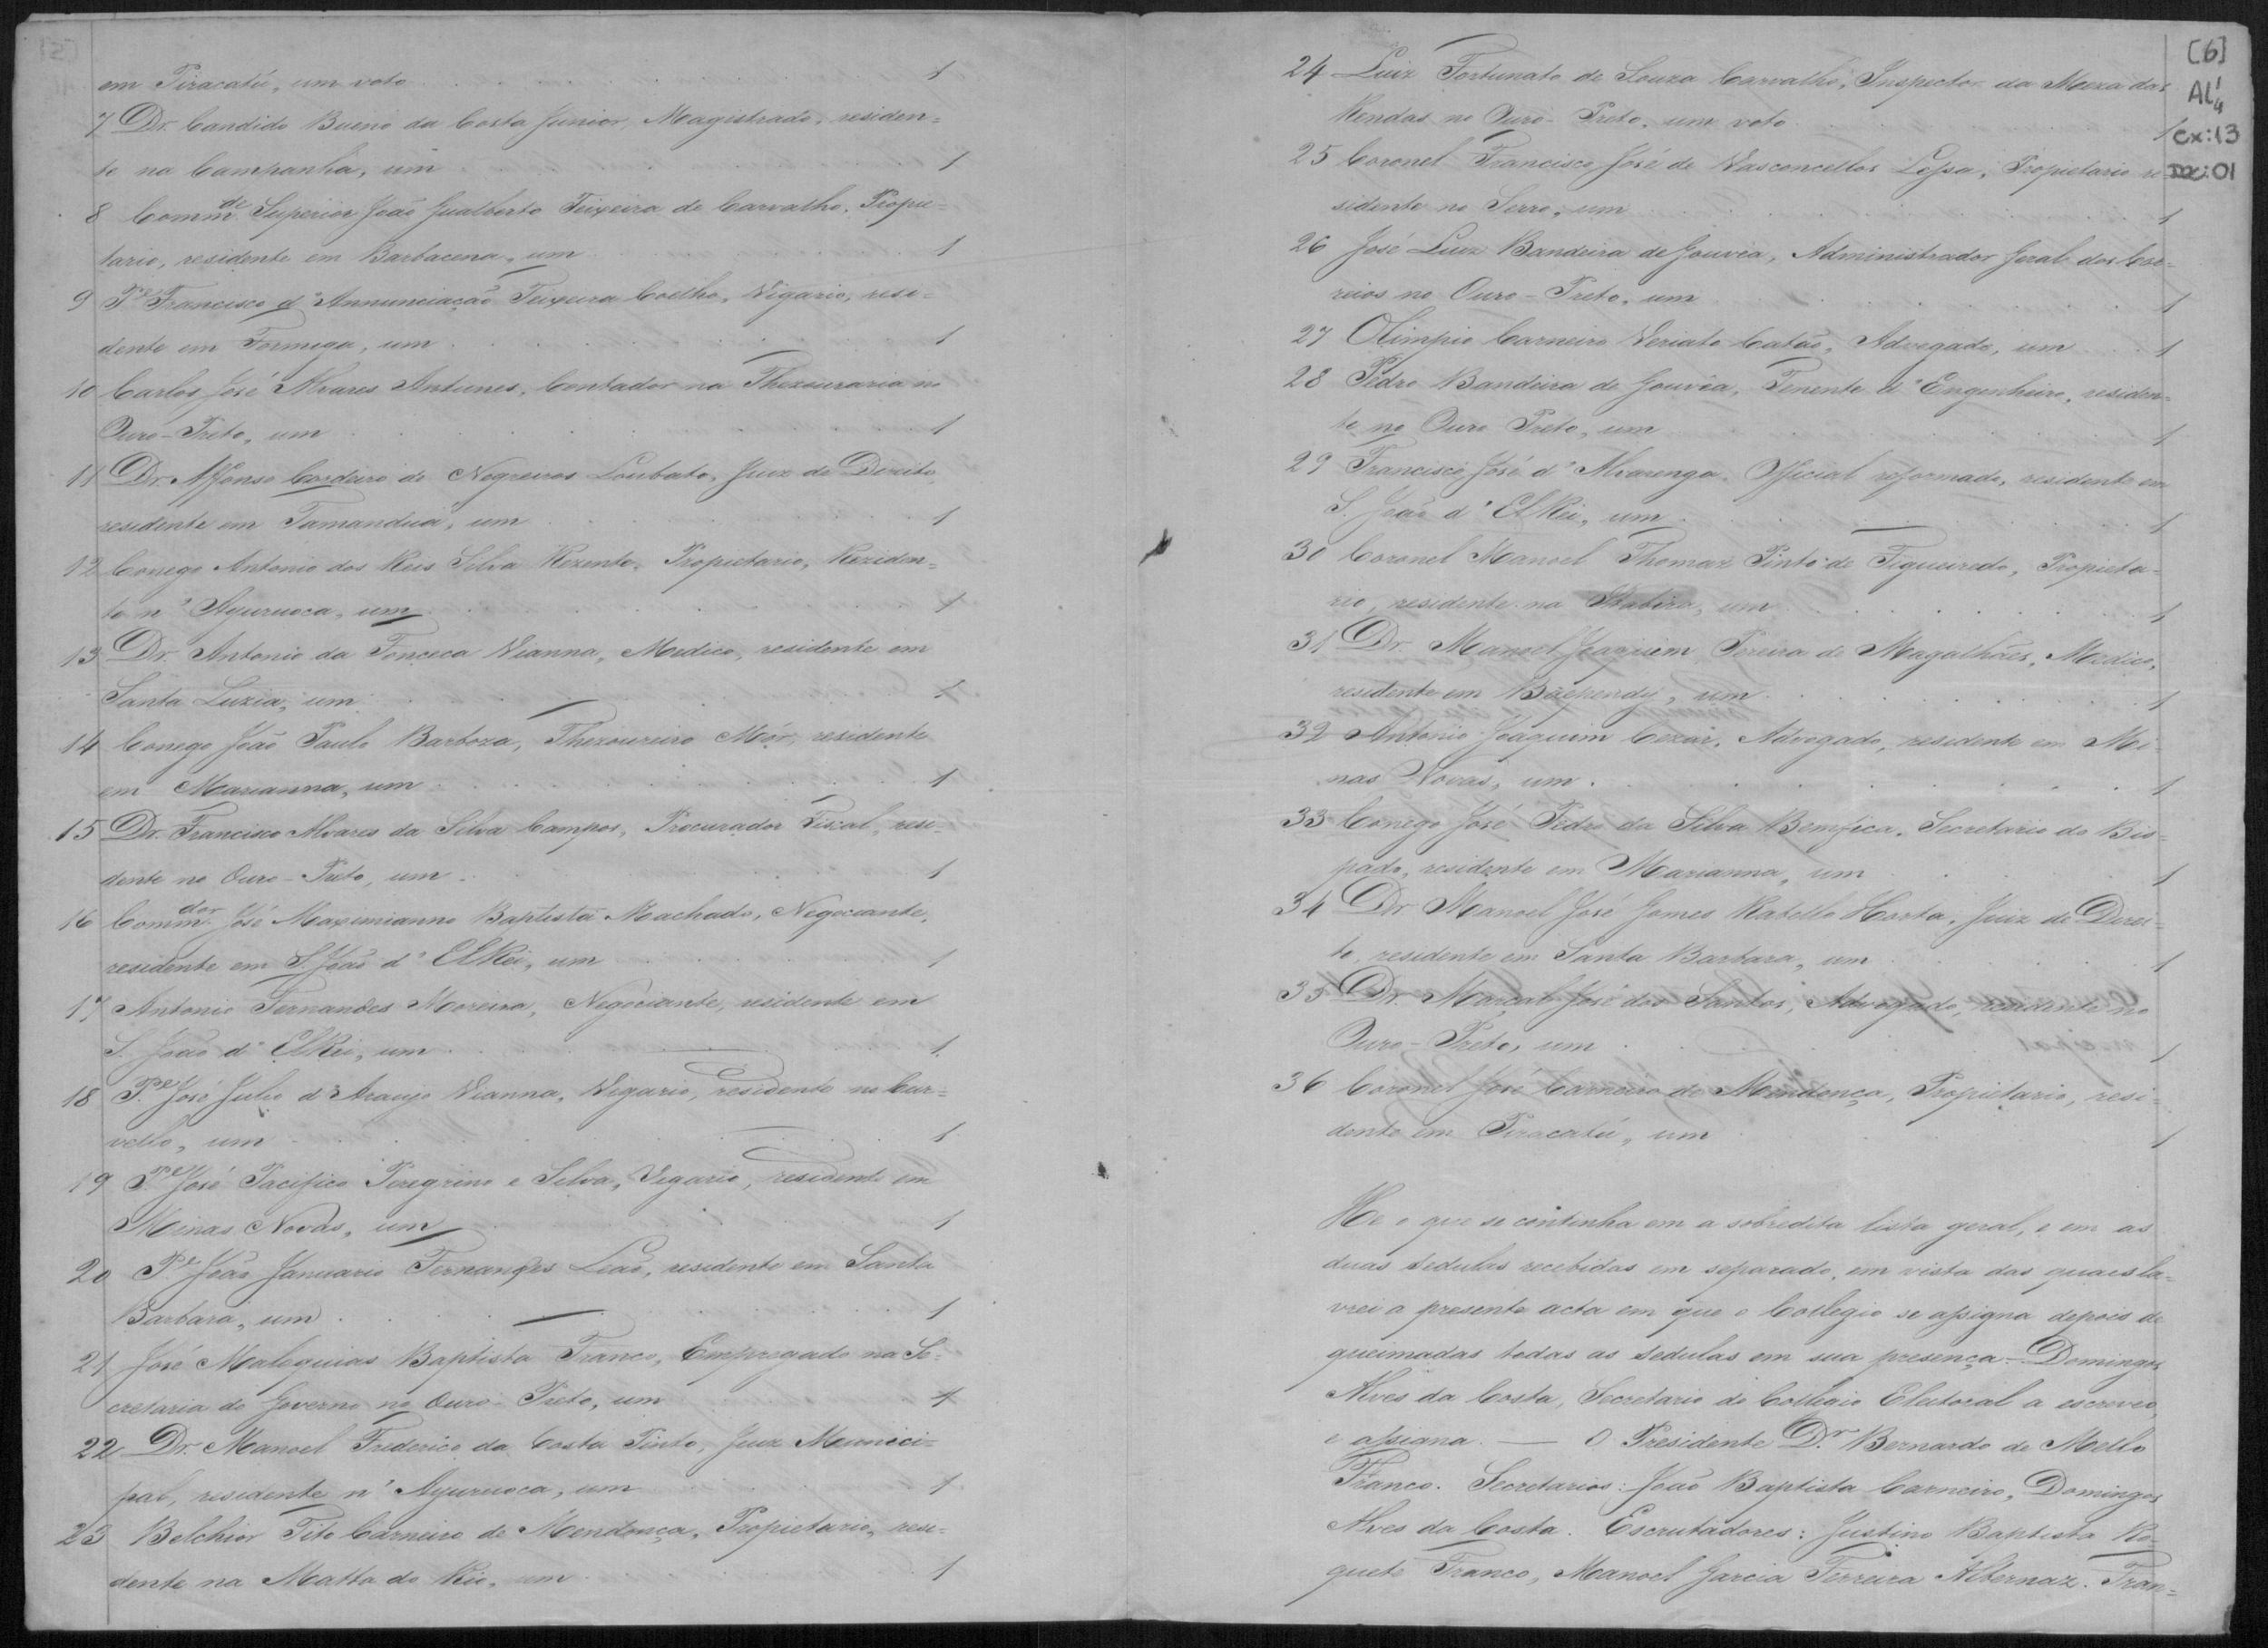 em Piracatú, um voto 1
7 Dr. Candido Bueno da Costa Junior, Magistrado, residen=
te na Campanha, um 1
8 Comm.de Superior João Gualberto Teixeira de Carvalho, Propie=
tario, residente em Barbacena, um 1
9 P.e Francisco d'Annunciação Teixeira Coelho, Vigario, resi=
dente em Formiga, um 1
10 Carlos José Alvares Antunes, Contador na Thezouraria no
Ouro-Preto, um 1
11 Dr. Affonso Cordeiro de Negreiros Loubato, Juiz de Direito,
residente em Tamanduá, um 1
12 Conego Antonio dos Reis Silva Rezente, Propietario, Reziden=
te n'Ayuruoca, um 1
13 Dr. Antonio da Fonceca Vianna, Medico, residente em
Santa Luzia, um 1
14 Conego João Paulo Barboza, Thezoureiro Mór, residente
em Marianna, um 1
15 Dr. Francisco Alvares da Silva Campos, Procurador Fiscal, resi=
dente no Ouro-Preto, um 1
16 Comm.dor José Maximianno Baptista Machado, Negociante,
residente em S. João d'ElRei, um 1
17 Antonio Fernandes Moreira, Negociante, residente em
S. João d'ElRei, um 1
18 P.e José Julio d'Araujo Vianna, Vigario, residente no Cur=
vello, um 1
19 P.e José Pacifico Peregrino e Silva, Vigario, residente em
Minas Novas, um 1
20 P.e João Januario Fernandes Leão, residente em Santa
Barbara, um 1
21 José Malequias Baptista Franco, Empregado na Se=
cretaria do Governo no Ouro-Preto, um 1
22 Dr. Manoel Frederico da Costa Pinto, Juiz Munici=
pal, residente n'Ayuruoca, um 1
23 Belchior Tito Carneiro de Mendonça, Propietario, resi=
dente na Matta do Rio, um 1
[6]
AL¹4
cx:13
01
24 Luiz Fortunato de Souza Carvalho, Inspector da Meza das
Rendas no Ouro-Preto, um voto 1
25 Coronel Francisco José de Vasconcellos Lessa, Propietario re=
sidente no Serro, um 1
26 José Luiz Bandeira de Gouvêa, Administrador Geral dos Cor=
reios no Ouro-Preto, um 1
27 Olimpio Carneiro Veriato Catão, Advogado, um 1
28 Pedro Bandeira de Gouvêa, Tenente d'Engenheiro, residen=
te no Ouro Preto, um 1
29 Francisco José d'Alvarenga, Official reformado, residente em
S. João d'ElRei, um 1
30 Coronel Manoel Thomaz Pinto de Figueiredo, Propieta=
rio, residente na Itabira, um 1
31 Dr. Manoel Joaquim Pereira de Magalhães, Medico,
residente em Baependy, um 1
32 Antonio Joaquim Cezar, Advogado, residente em Mi=
nas Novas, um 1
33 Conego José Pedro da Silva Bemfica, Secretario do Bis=
pado, residente em Marianna, um 1
34 Dr Manoel José Gomes Rabello Horta, Juiz de Direi=
to, residente em Santa Barbara, um 1
35 Dr. Marçal José dos Santos, Advogado, residente no
Ouro-Preto, um 1
36 Coronel José Carneiro de Mendonça, Propietario, resi=
dente em Piracatú, um 1
He o que se continha em a sobredita lista geral, e em as
duas sedulas recebidas em separado, em vista das quaes la=
vrei a presente acta em que o Collegio se assigna depois de
queimadas todas as sedulas em sua presença. Domingos
Alves da Costa, Secretario do Collegio Eleitoral a escreveo,
e assigna. — O Presidente D.r Bernardo de Mello
Franco. Secretarios: João Baptista Carneiro, Domingos
Alves da Costa. Escrutadores: Justino Baptista Ro=
quete Franco, Manoel Garcia Ferreira Albernaz. Fran=